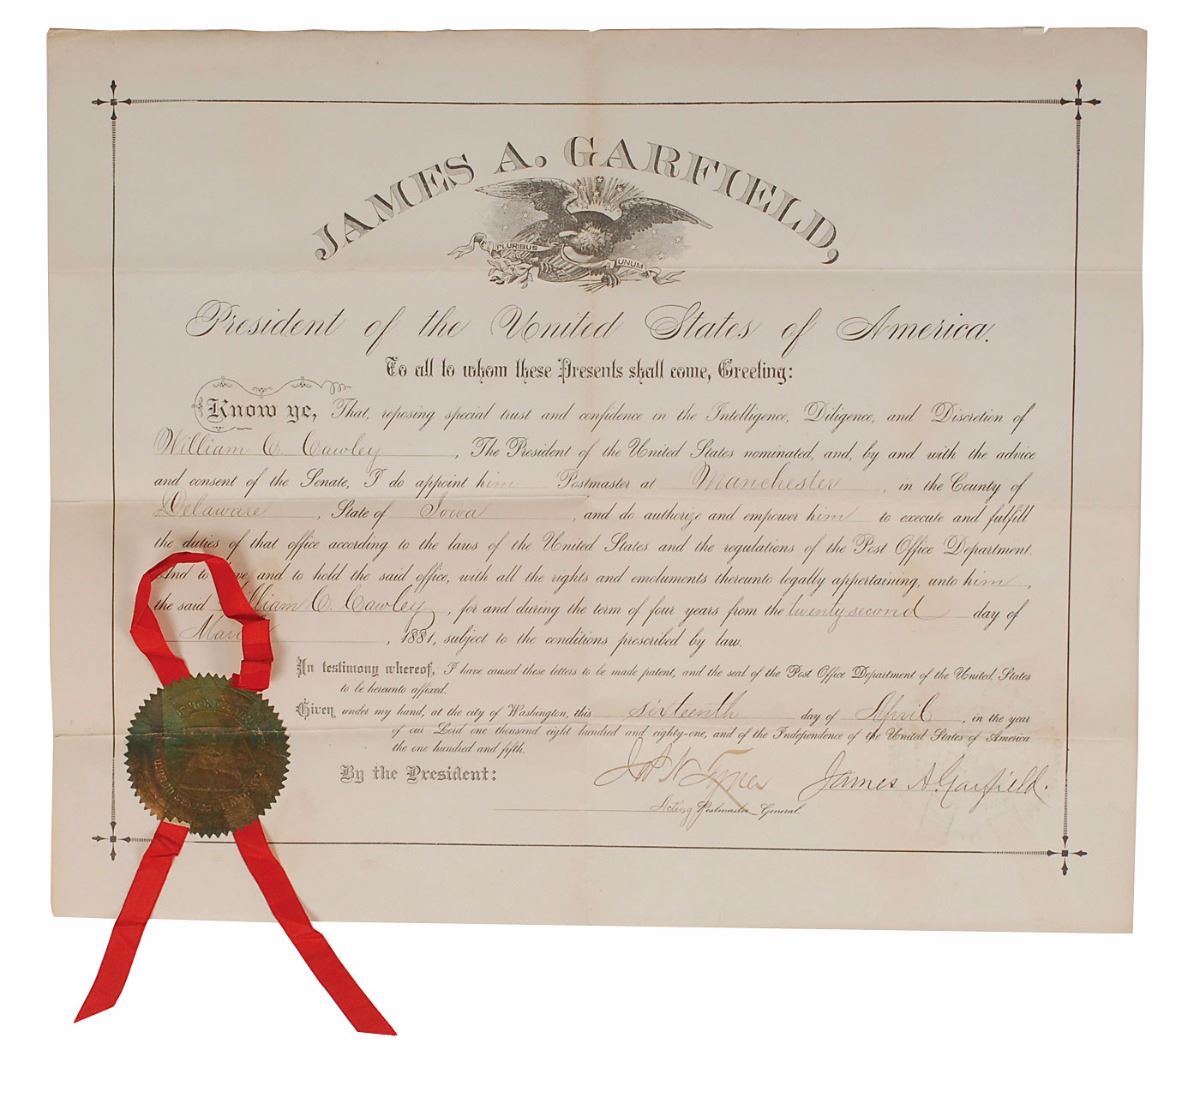 JAMES A. GARFIELD,
PLURIBUS UNUM
President of the United States of America.
To all to whom these Presents shall come, Greeting:
Know ye, That, reposing special trust and confidence in the Intelligence, Diligence, and Discretion of
William C. Cawley, The President of the United States nominated, and, by and with the advice
and consent of the Senate, I do appoint him Postmaster at Manchester, in the County of
Delaware, State of Iowa, and do authorize and empower him to execute and fulfill
the duties of that office according to the laws of the United States and the regulations of the Post Office Department.
And to have, and to hold the said office, with all the rights and emoluments thereunto legally appertaining, unto him,
the said William C. Cawley, for and during the term of four years from the twenty second day of
March, 1881, subject to the conditions prescribed by law.
In testimony whereof, I have caused these letters to be made patent, and the seal of the Post Office Department of the United States
to be hereunto affixed.
Given under my hand, at the city of Washington, this sixteenth day of April, in the year
of our Lord one thousand eight hundred and eighty-one, and of the Independence of the United States of America
the one hundred and fifth.
By the President: James A. Garfield.
Acting Postmaster General.